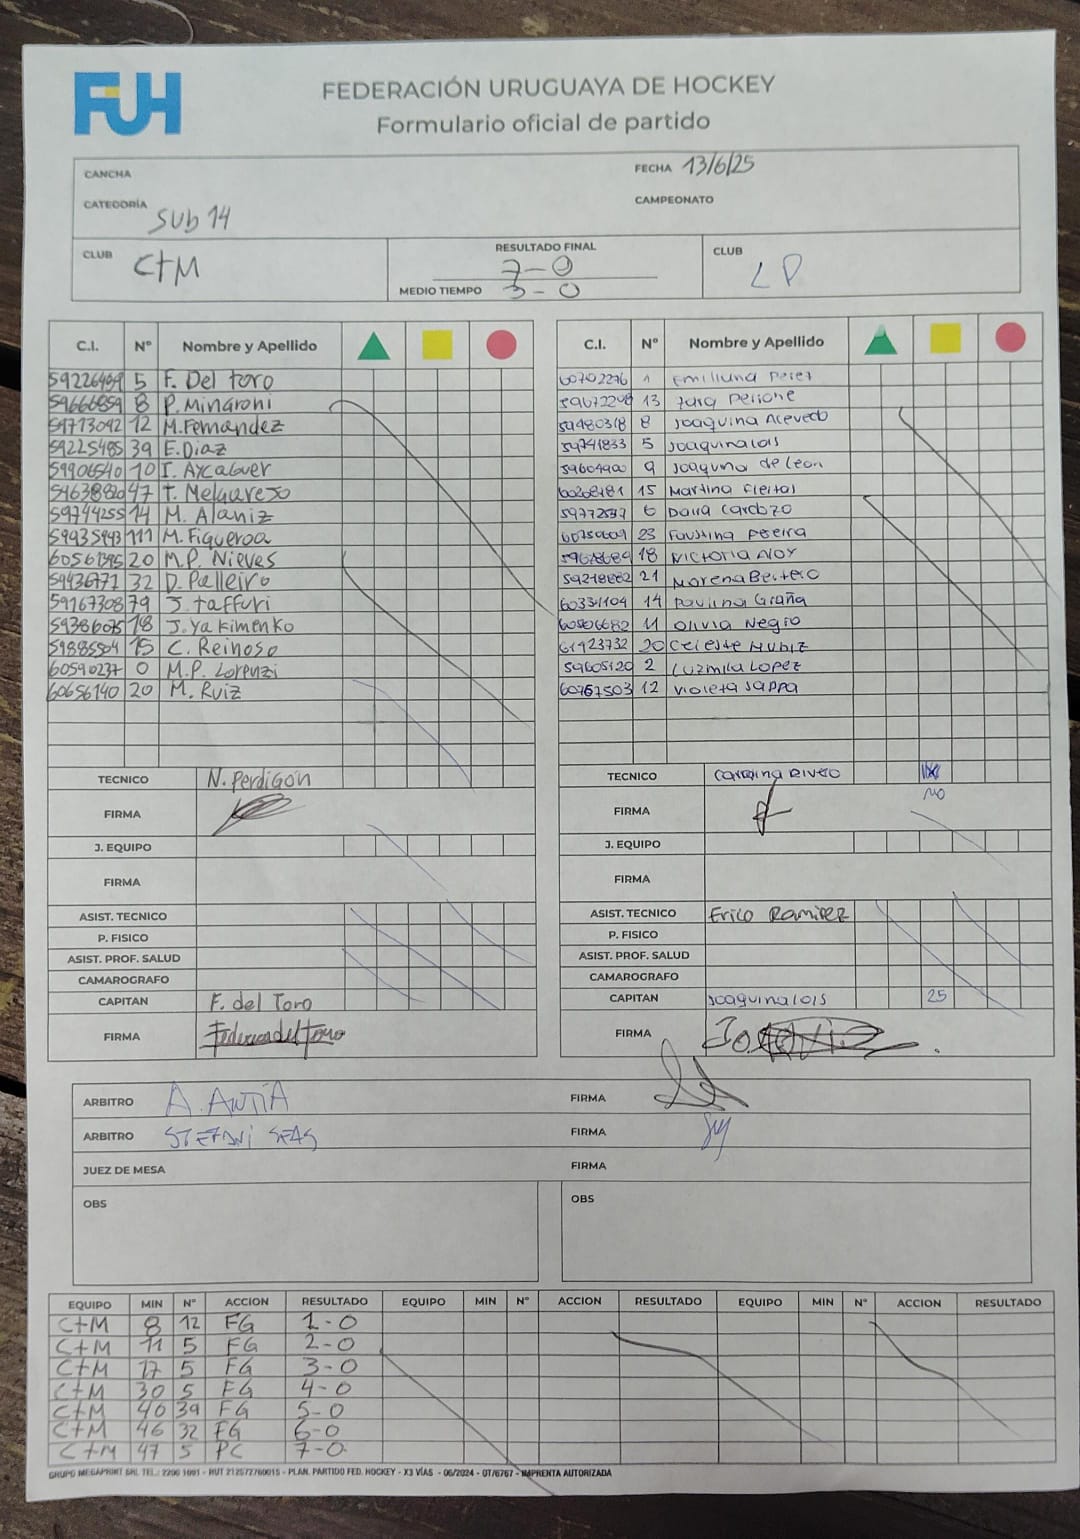 FUH
FEDERACIÓN URUGUAYA DE HOCKEY
Formulario oficial de partido
CANCHA
FECHA 13/6/25
CATEGORÍA Sub 14
CAMPEONATO
CLUB C+M
RESULTADO FINAL 7-0
MEDIO TIEMPO 3-0
CLUB LP
C.I. N° Nombre y Apellido
5 F. Del toro
59666859 8 P. Minaroni
59713042 12 M. Fernandez
59225485 39 E. Diaz
59906540 10 I. Aycaguer
47 T. Melgarejo
59744255 14 M. Alaniz
59935943 111 M. Figueroa
20 M.P. Nieves
59436771 32 D. Palleiro
59167308 79 J. taffuri
59386075 18 J. Yakimenko
59885504 15 C. Reinoso
60590237 0 M.P. Lorenzi
60656140 20 M. Ruiz
TECNICO N. Perdigón
FIRMA
J. EQUIPO
FIRMA
ASIST. TECNICO
P. FISICO
ASIST. PROF. SALUD
CAMAROGRAFO
CAPITAN F. del Toro
FIRMA Federica del Toro
C.I. N° Nombre y Apellido
60702276 1 Emiliana Perez
13 Jara Perione
59480318 8 Joaquina Acevedo
59741833 5 Joaquina Lois
59604900 9 Joaquina de León
15 Martina Fleital
59772537 6 Daira Cardozo
23 Faustina Pereira
18 Victoria Noy
21 Morena Bertero
60331104 14 Paulina Graña
60506682 11 Olivia Negro
61923732 20 Celeste Muniz
59605120 2 Luzmila Lopez
60767503 12 Violeta Sappa
TECNICO Carolina Rivero
NO
FIRMA
J. EQUIPO
FIRMA
ASIST. TECNICO Erico Ramirez
P. FISICO
ASIST. PROF. SALUD
CAMAROGRAFO
CAPITAN Joaquina Lois 25
FIRMA
ARBITRO A. ANTÍA FIRMA
ARBITRO STEFANI SEAS FIRMA
JUEZ DE MESA FIRMA
OBS
OBS
EQUIPO MIN N° ACCION RESULTADO EQUIPO MIN N° ACCION RESULTADO EQUIPO MIN N° ACCION RESULTADO
C+M 8 12 FG 1-0
C+M 11 5 FG 2-0
C+M 17 5 FG 3-0
C+M 30 5 FG 4-0
C+M 40 39 FG 5-0
C+M 46 32 FG 6-0
C+M 47 5 PC 7-0
GRUPO MEGAPRINT SRL TEL.: 2200 1091 - RUT 212572760015 - PLAN. PARTIDO FED. HOCKEY - X3 VÍAS - 06/2024 - OT/6767 - IMPRENTA AUTORIZADA